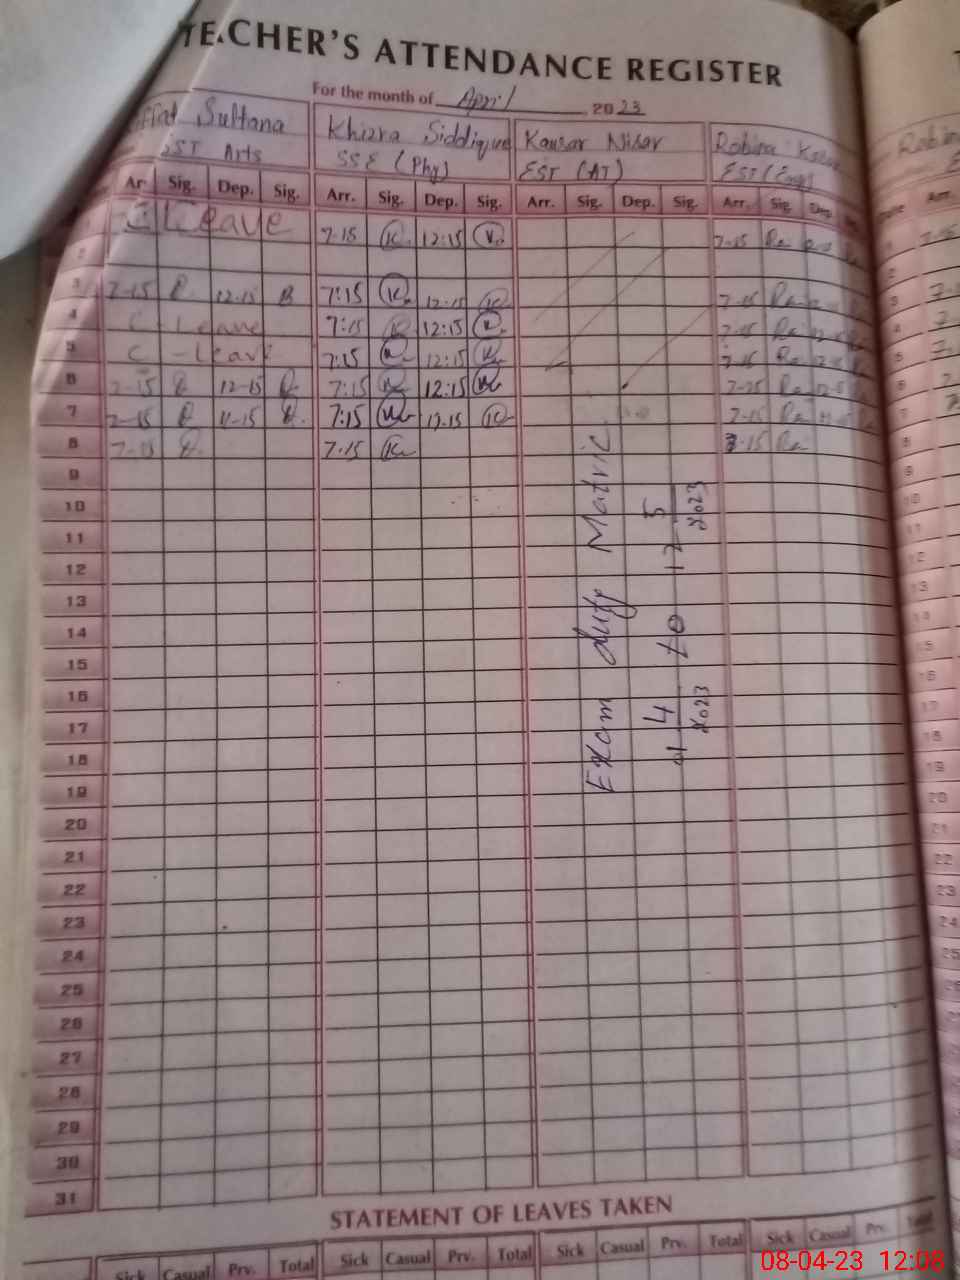 TEACHER'S ATTENDANCE REGISTER
For the month of April 2023
Sultana Khizra Siddique Kausar Nisar Robina
SST Arts SSE (Phy) EST (AT) EST (Eng)
Ar Sig. Dep. Sig. Arr. Sig. Dep. Sig. Arr. Sig. Dep. Sig. Arr. Sig. Dep.
1 C Leave 7-15 K 12:15 K 7-15 Ra
2
3 7-15 B 12-15 B 7:15 K 12-15 K 7-15 Ra
4 C - Leave 7:15 K 12:15 K 7-15 Ra
5 C - Leave 7:15 K 12:15 K 7-15 Ra
6 7-15 B 12-15 B 7:15 K 12:15 K 7-15 Ra
7 7-15 B 11-15 B 7:15 K 12-15 K 7-15 Ra
8 7-15 B 7.15 K 7-15 Ra
9
10
11
12
13
14
15
16
17
18
19
20
21
22
23
24
25
26
27
28
29
30
31
Exam duty Matric
01 4 2023 to 12 5 2023
STATEMENT OF LEAVES TAKEN
Sick Casual Prv. Total Sick Casual Prv. Total Sick Casual Prv. Total Sick Casual Prv. Total
08-04-23 12:08